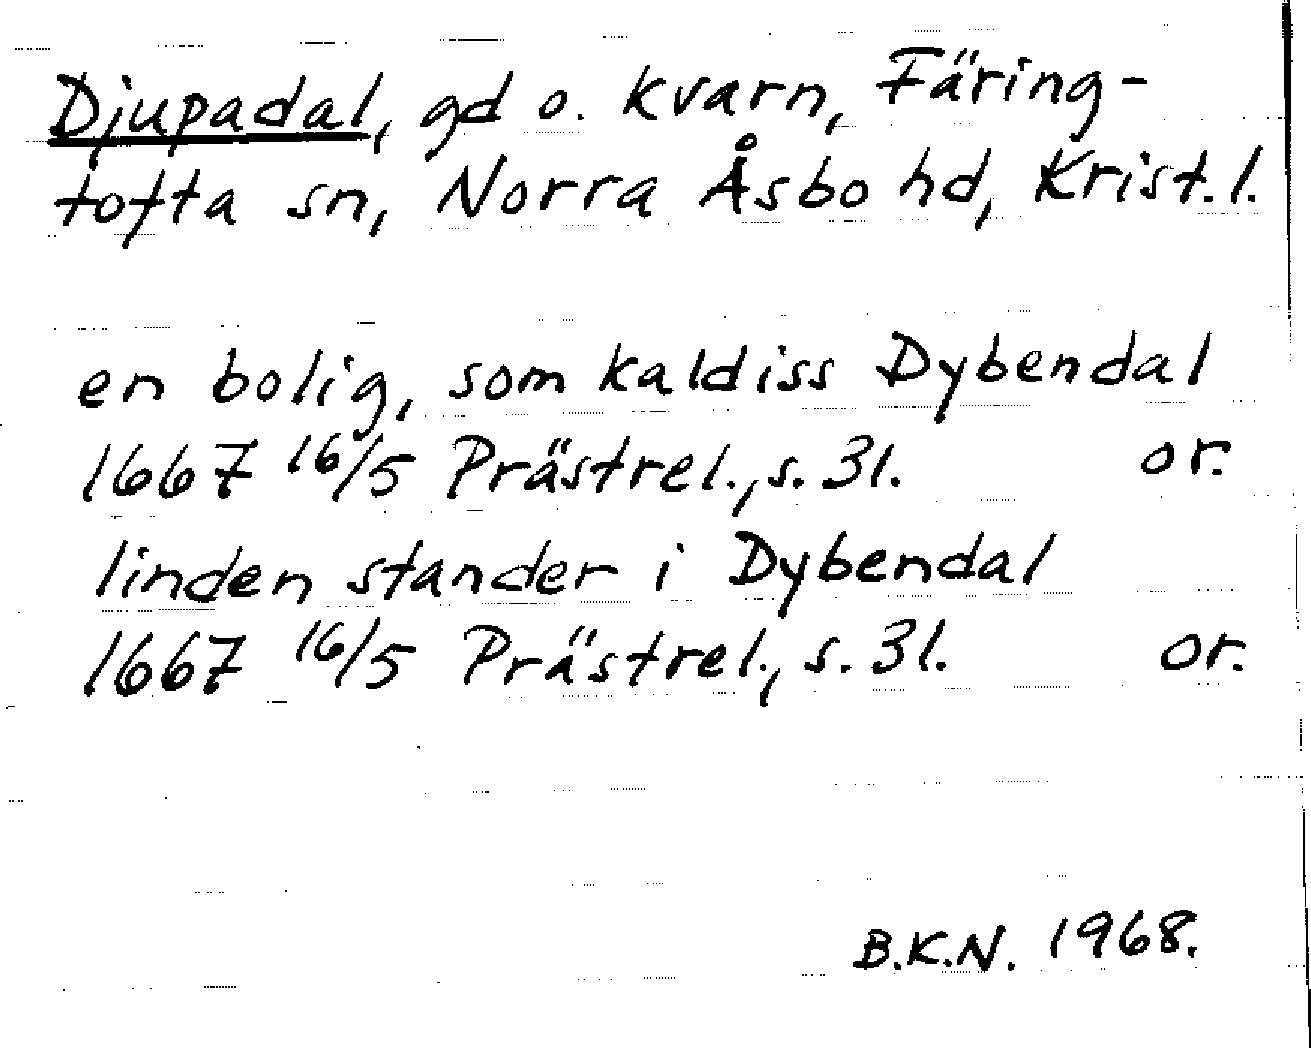 Djupadal, gd o. kvarn, Färing-
tofta sn, Norra Åsbo hd, Krist. l.
en bolig, som kaldiss Dybendal
1667 16/5 Prästrel., s. 31. or.
linden stander i Dybendal
1667 16/5 Prästrel., s. 31. or.
B.K.N. 1968.